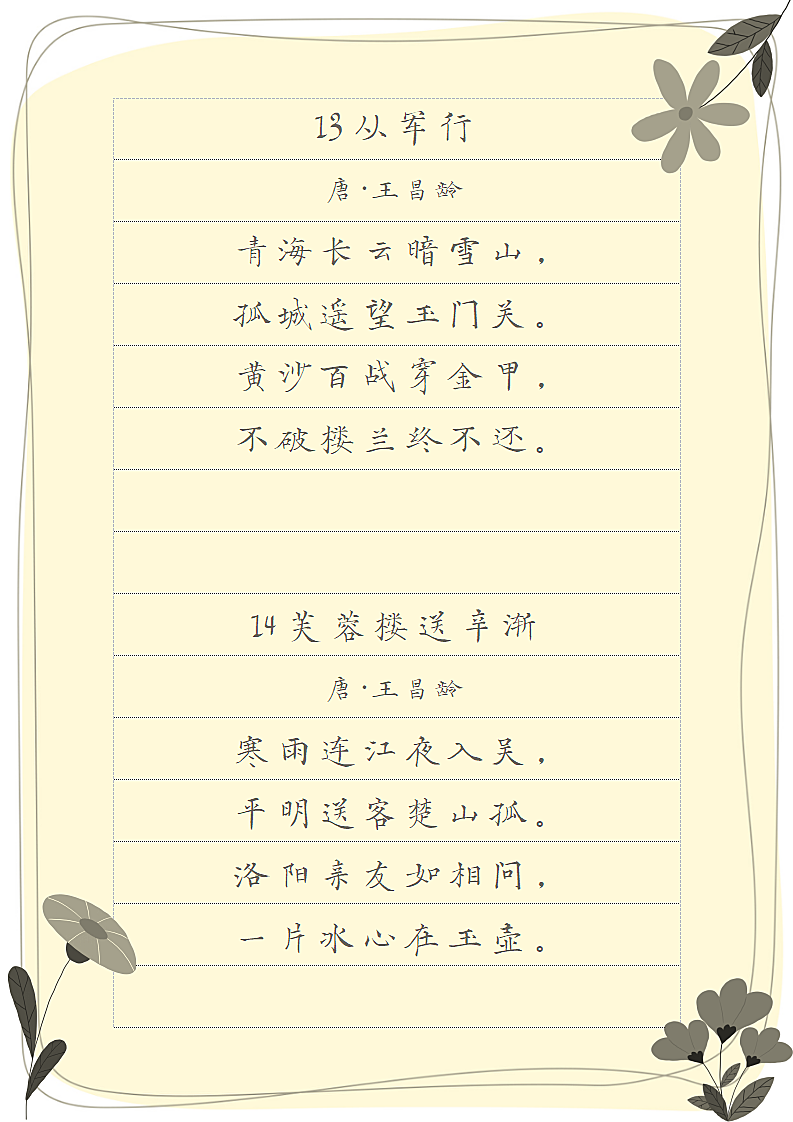 13从军行
唐·王昌龄
青海长云暗雪山，
孤城遥望玉门关。
黄沙百战穿金甲，
不破楼兰终不还。
14芙蓉楼送辛渐
唐·王昌龄
寒雨连江夜入吴，
平明送客楚山孤。
洛阳亲友如相问，
一片冰心在玉壶。